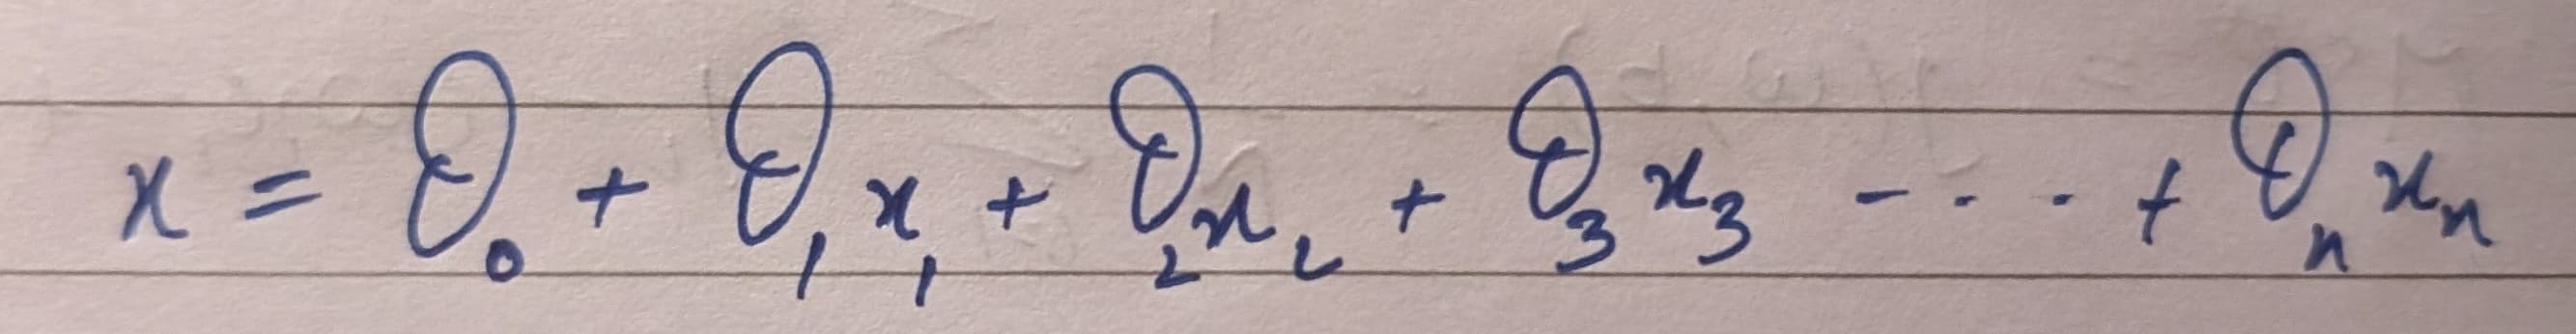 x = θ₀ + θ₁x₁ + θ₂x₂ + θ₃x₃ -... + θₙxₙ